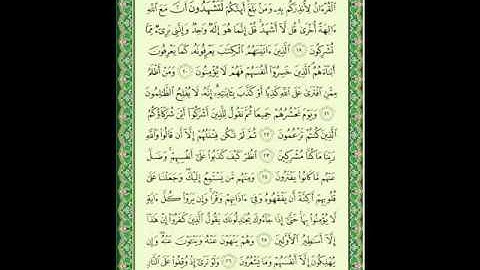 ٱلْقُرْءَانُ لِأُنذِرَكُم بِهِۦ وَمَنۢ بَلَغَ ۚ أَئِنَّكُمْ لَتَشْهَدُونَ أَنَّ مَعَ ٱللَّهِ
ءَالِهَةً أُخْرَىٰ ۚ قُل لَّآ أَشْهَدُ ۚ قُلْ إِنَّمَا هُوَ إِلَٰهٌ وَٰحِدٌ وَإِنَّنِى بَرِىٓءٌ مِّمَّا
تُشْرِكُونَ ١٩ ٱلَّذِينَ ءَاتَيْنَٰهُمُ ٱلْكِتَٰبَ يَعْرِفُونَهُۥ كَمَا يَعْرِفُونَ
أَبْنَآءَهُمُ ۘ ٱلَّذِينَ خَسِرُوٓا۟ أَنفُسَهُمْ فَهُمْ لَا يُؤْمِنُونَ ٢٠ وَمَنْ أَظْلَمُ
مِمَّنِ ٱفْتَرَىٰ عَلَى ٱللَّهِ كَذِبًا أَوْ كَذَّبَ بِـَٔايَٰتِهِۦٓ ۗ إِنَّهُۥ لَا يُفْلِحُ ٱلظَّٰلِمُونَ
٢١ وَيَوْمَ نَحْشُرُهُمْ جَمِيعًا ثُمَّ نَقُولُ لِلَّذِينَ أَشْرَكُوٓا۟ أَيْنَ شُرَكَآؤُكُمُ
ٱلَّذِينَ كُنتُمْ تَزْعُمُونَ ٢٢ ثُمَّ لَمْ تَكُن فِتْنَتُهُمْ إِلَّآ أَن قَالُوا۟ وَٱللَّهِ
رَبِّنَا مَا كُنَّا مُشْرِكِينَ ٢٣ ٱنظُرْ كَيْفَ كَذَبُوا۟ عَلَىٰٓ أَنفُسِهِمْ ۚ وَضَلَّ
عَنْهُم مَّا كَانُوا۟ يَفْتَرُونَ ٢٤ وَمِنْهُم مَّن يَسْتَمِعُ إِلَيْكَ ۖ وَجَعَلْنَا عَلَىٰ
قُلُوبِهِمْ أَكِنَّةً أَن يَفْقَهُوهُ وَفِىٓ ءَاذَانِهِمْ وَقْرًا ۚ وَإِن يَرَوْا۟ كُلَّ ءَايَةٍ
لَّا يُؤْمِنُوا۟ بِهَا ۚ حَتَّىٰٓ إِذَا جَآءُوكَ يُجَٰدِلُونَكَ يَقُولُ ٱلَّذِينَ كَفَرُوٓا۟ إِنْ هَٰذَآ
إِلَّآ أَسَٰطِيرُ ٱلْأَوَّلِينَ ٢٥ وَهُمْ يَنْهَوْنَ عَنْهُ وَيَنْـَٔوْنَ عَنْهُ ۖ وَإِن
يُهْلِكُونَ إِلَّآ أَنفُسَهُمْ وَمَا يَشْعُرُونَ ٢٦ وَلَوْ تَرَىٰٓ إِذْ وُقِفُوا۟ عَلَى ٱلنَّارِ